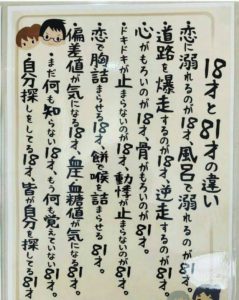 18才と81才の違い
恋に溺れるのが18才、風呂で溺れるのが81才。
道路を爆走するのが18才、逆走するのが81才。
心がもろいのが18才、骨がもろいのが81才。
ドキドキが止まらないのが18才、動悸が止まらないのが81才。
恋で胸詰まらせる18才、餅で喉を詰まらせる81才。
偏差値が気になる18才、血圧・血糖値が気になる81才。
まだ何も知らない18才、もう何も覚えていない81才。
自分探しをしてる18才、皆が自分を探してる81才。